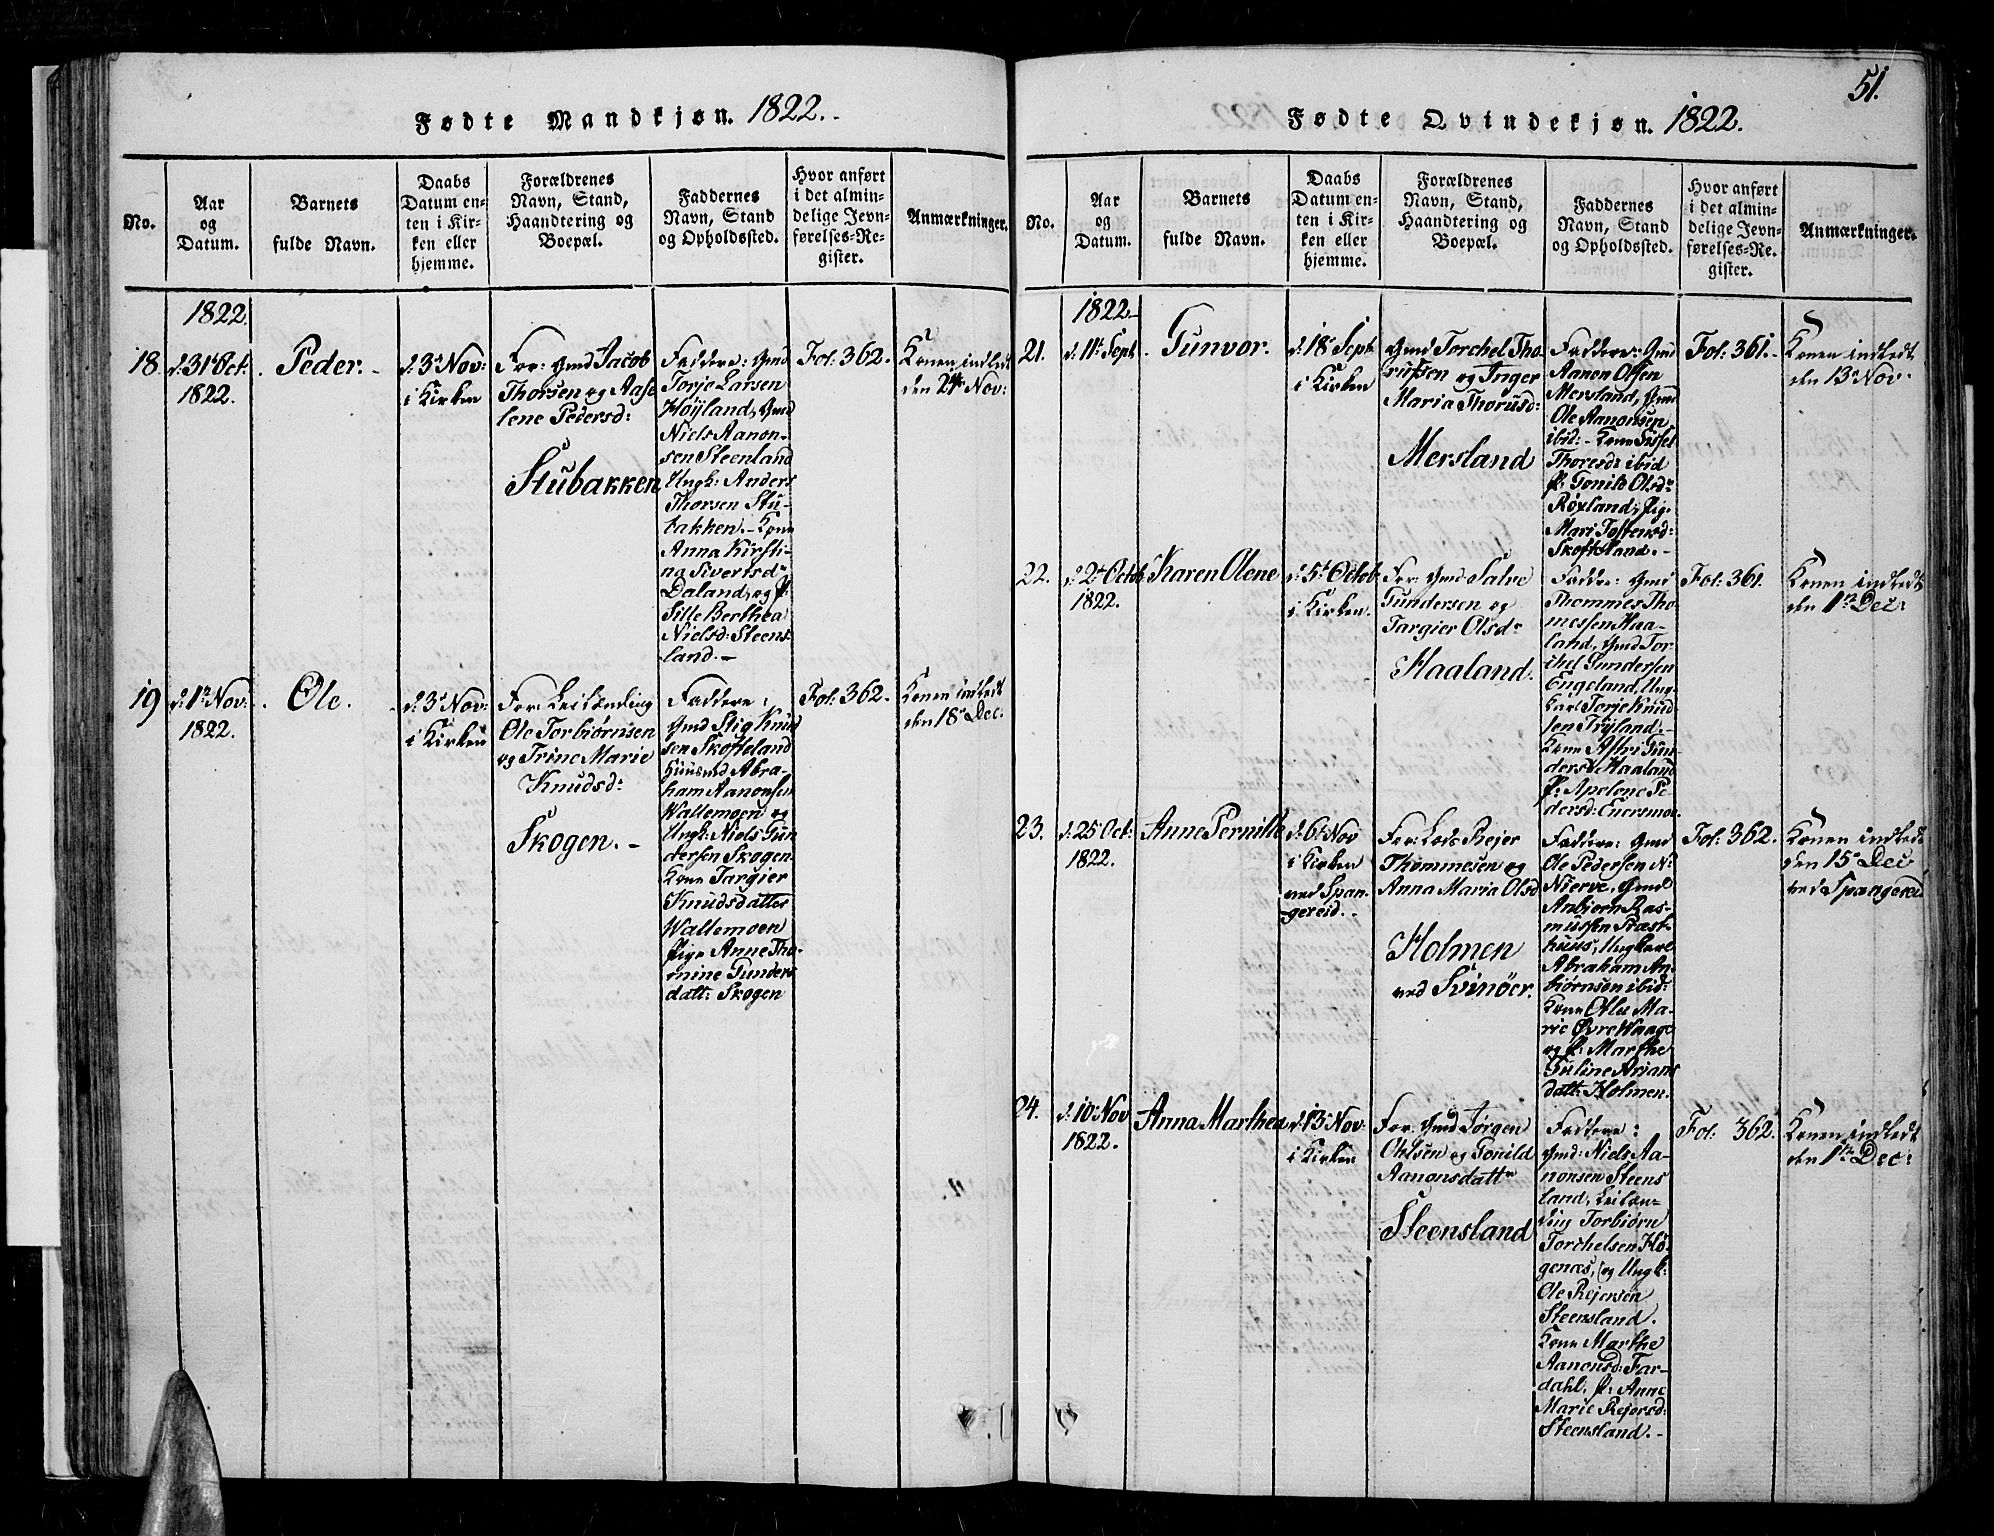 Fødte Mandkjøn. 1822.
No.
Aar
og
Datum.
Barnets
fulde Navn.
Daabs
Datum en-
ten i Kir-
ken eller
hjemme.
Forældrenes
Navn, Stand,
Haandtering og
Boepæl.
Faddernes
Navn, Stand
og Opholdssted.
Hvor anført
i det almin-
delige Jevn-
førelses-Re-
gister.
Anmærkninger.
1822.
18.
d: 31t Oct.
1822.
Peder.
d: 3d Nov:
i Kirken
For: Gmd Jacob
Thorsen og Aase
lene Pedersd:
Stubakken
Faddere: Gmd
Torje Larsen
Höyland, Gmd
Niels Aanon-
sen Steenland
Ungk: Anders
Thorsen Stu-
bakken. Kone
Anna Kirsti-
na Sivertsd:
Daland, og P:
Sille Berthea
Nielsd: Steens
land.
Fol: 362.
Konen indledt
den 24de Nov:
19
d: 1n Nov:
1822.
Ole.
d: 3d Nov:
i Kirken
For: Leilænding
Ole Torbiørnsen
og Trine Marie
Knudsd:
Skogen.
Faddere:
Gmd Stig Knud
sen Skofteland
Huusmd Abra-
ham Aanonsen
Wallemoen og
Ungk: Niels Gun
dersen Skogen.
Kone Targier
Knudsdatter
Wallemoen
Pige Anne Tho-
mine Gunders
datt: Skogen
Fol: 362.
Konen indledt
den 18de Dec.
51.
Fødte Qvindekjøn. 1822.
No.
Aar
og
Datum.
Barnets
fulde Navn.
Daabs
Datum en-
ten i Kir-
ken eller
hjemme.
Forældrenes
Navn, Stand,
Haandtering og
Boepæl.
Faddernes
Navn, Stand
og Opholdssted.
Hvor anført
i det almin-
delige Jevn-
førelses-Re-
gister.
Anmærkninger.
1822
21.
d: 11t Sept.
Gunvor.
d: 18de Sept
i Kirken
Gmd Torchel Tho
russen og Inger
Maria Thorusd:
Mersland
Faddere: Gmd
Aanen Olsen
Mersland, Gmd
Ole Aanonsen
ibid: Kone Sissel
Thoresd: ibid
P: Gonild Olsd:
Røxland, Pig.
Mari Tostensd:
Skoftsland.
Fol: 361.
Konen indledt
den 13de Nov.
22.
d: 2d Octob
1822.
Karen Olene
d: 5t Octob
i Kirken.
For: Gmd Salve
Gundersen og
Targier Olsd:
Haaland.
Faddere: Gmd
Thommes Tho-
mesen Haa-
land, Gmd Tor-
chel Gundersen
Engeland, Ung
karl Torje Knud
sen Tryland.
Kone Astri Gun-
dersd: Haaland
P: Apelone Pe-
dersd: Enersmoe
Fol: 361.
Konen indledt
den 1n Dec:
23.
d: 25 Oct:
1822.
Anne Pernille
d: 6t Nov
i Kirken
ved Span-
gereid.
For: Lods Rejer
Thommesen og
Anna Maria Olsd
Holmen
ved Svinöer.
Faddere: Gmd
Ole Pedersen N:
Nierve, Gmd
Anbiørn Ras-
mussen Præst-
huus, Ungkarl
Abraham An-
biørnsen ibid:
Kone Ma-
rie Øvre Waage
og P: Marthe
Guline Arians
datt: Holmen.
Fol: 362.
Konen indledt
den 15de Dec
ved Spangereid
24.
d: 10de Nov
1822.
Anna Marthea
d: 13de Nov:
i Kirken
For: Gmd Jørgen
Ohlsen og Gonild
Aanonsdattr
Steensland
Faddere:
Gmd: Niels Aa-
nonsen Steens
land, Leilæn-
ding Torbiørn
Torchelsen Hö-
genæs, og Ungk:
Ole Rejersen
Steensland.
Kone Marthe
Aanonsd: Far-
dahl, P: Anne
Marie Rejersd:
Steensland.
Fol: 362.
Konen indledt
den 1n Dec: